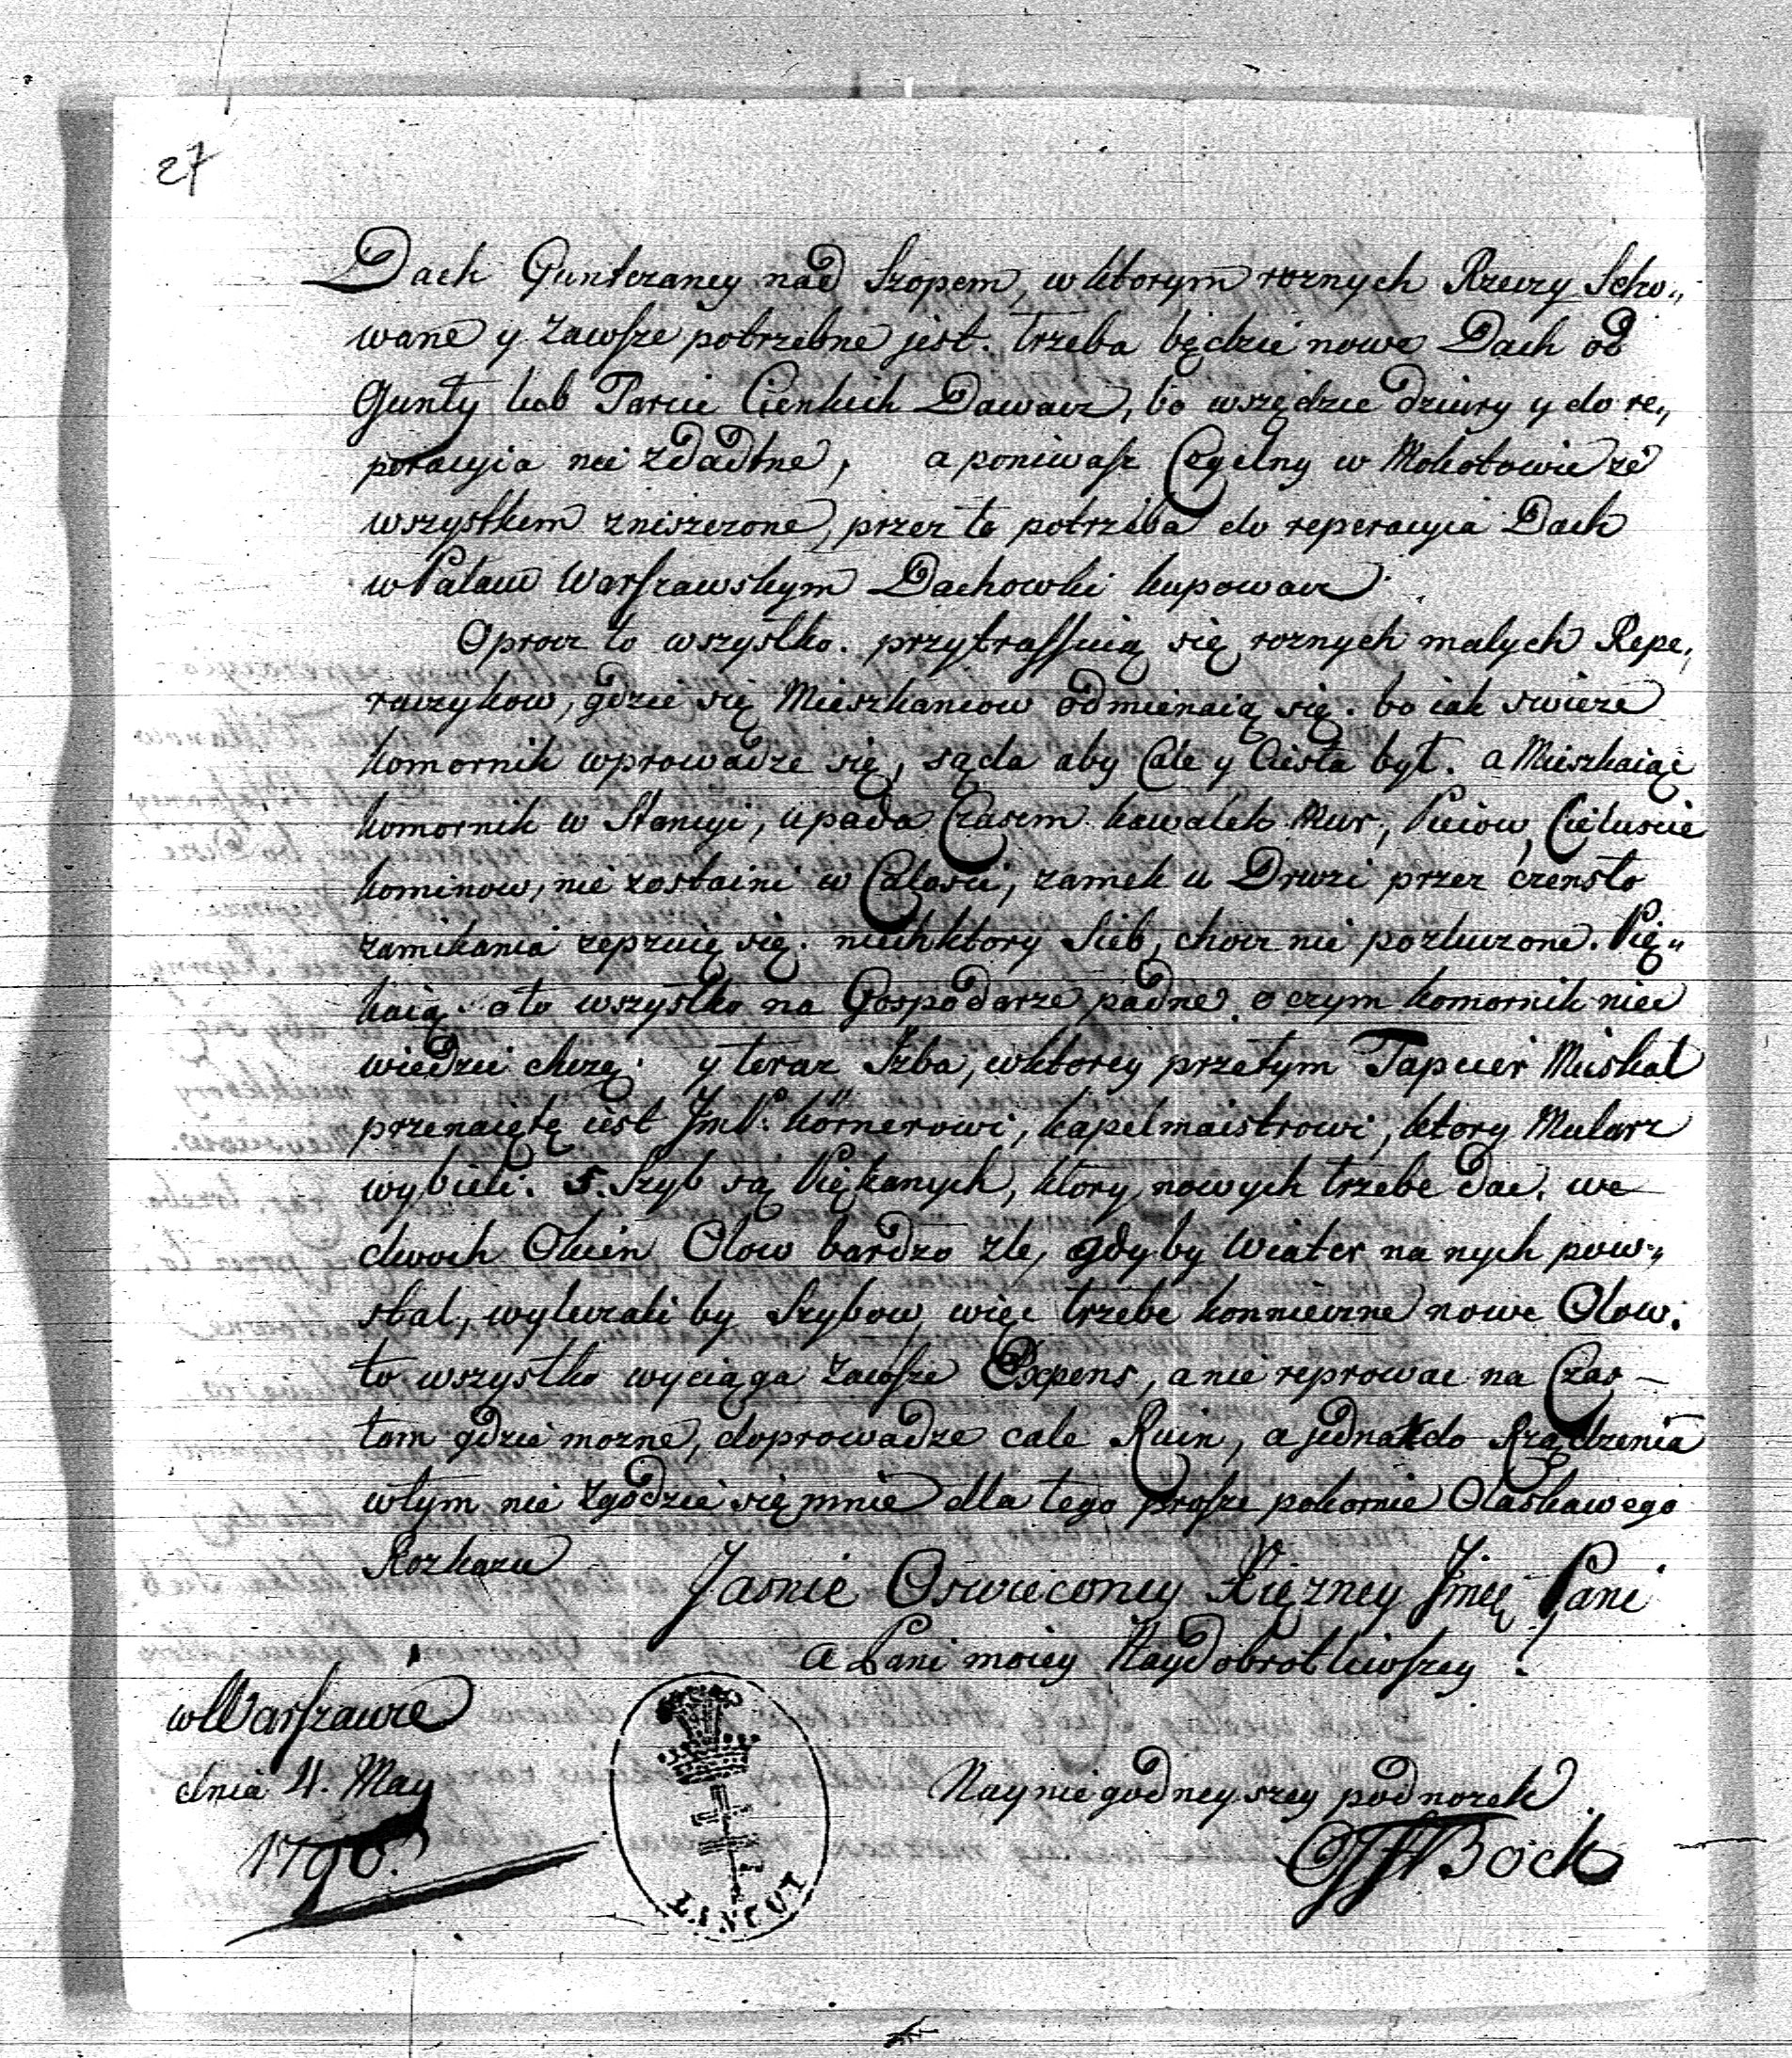 27
Dach Gunteraney nad Szopem, w ktorym roznych Rzeczy Scho„
wane y zawsze potrzebne jest. trzeba będzie nowe Dach od
Gunty lub Tarcie Cienkich Dawacz, bo wszędzie dziury y do re„
peracyia nei zdadtne, a poniwasz Cegelny w Mokotowie ze
wszystkem zniszczone, przez to potrzeba do reperacyia Dach
w Pałacu Warszawskym Dachowki kupowacz
Oprocz to wszystko. przytraffuią się roznych malych Repe„
raczykow, gdzie się Mieszkancow odmienaią się. bo iak swieze
komornik wprowadze się, sąda aby Cale y Ciesta byt. a Mieszkaiąc
komornik w Stancyi, upada Czasem kawalek Mur, Pieców, Cieluscie
kominow, nie zostaini w Calosci, zamek u Drwzi przez czensto
zamikania zepzuię się. niechktory Sieb, chocz nie pozluczone. Pię„
kaią a to wszystko na Gospodarze padne. o czym komornik niec
wiedzei chczę. y teraz Izba, w ktorey przetym Tapcier Miskal
przenaiętę iest JmP. Körnerowi, kapelmaistrowi, ktory Mularz
wybieli. 5. Szyb są Piękanych, ktory nowych trzebe dac. we
dwoch Okien Olow bardzo zle, gdyby Wiater na nych pow„
stal, wyluczali by Szybow, więc trzebe konnieczne nowe Olow.
to wszystko wyciąga zawsze Expens, a nie reprowac na Czas
tam gdzie mozne, doprowadze cale Ruin, a jednak do Rządzenia
w tym nie zgodzie się mnie dla tego prosze pokornie Olaskawego
Rozkazu
Jasnie Oswieconey Xięzney Jmcę Pani
a Pani moiey Naydobrotliwszey
w Warszawie
dnia 4. May
1796.
Nayniegodneyszey podnozek
Bock
ŁAŃCUT